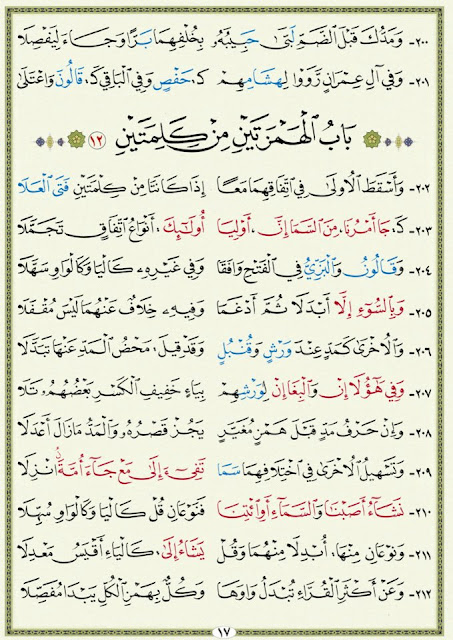 ٢٠٠- وَمَدُّكَ قَبْلَ الضَّمِّ لَبَّىٰ حَبِيبُهُۥ بِخُلْفِهِمَا بَرًّا وَجَاءَ لِيَفْصِلَا
٢٠١- وَفِي آلِ عِمْرَانٍ رَّوَوْا لِهِشَامِهِمْ كَـ، حَفْصٍ وَفِي الْبَاقِي كَـ، قَالُونَ وَاعْتَلَىٰ
بَابُ الْهَمْزَتَيْنِ مِنْ كَلِمَتَيْنِ ١٢
٢٠٢- وَأَسْقَطَ الْأُولَىٰ فِي اتِّفَاقِهِمَا مَعًا إِذَا كَانَتَا مِنْ كَلِمَتَيْنِ فَتَى الْعَلَا
٢٠٣- كَـ، جَا أَمْرُنَا، مِنَ السَّمَا إِنَّ، أَوْلِيَا أُولَٰئِكَ، أَنْوَاعُ اتِّفَاقٍ تَجَمَّلَا
٢٠٤- وَقَالُونُ وَالْبَزِّيُّ فِي الْفَتْحِ وَافَقَا وَفِي غَيْرِهِۦ كَالْيَا وَكَالْوَاوِ سَهَّلَا
٢٠٥- وَبِالسُّوءِ إِلَّا أَبْدَلَا ثُمَّ أَدْغَمَا وَفِيهِ خِلَافٌ عَنْهُمَا لَيْسَ مُقْفَلَا
٢٠٦- وَالْأُخْرَىٰ كَمَدٍّ عِنْدَ وَرْشٍ وَقُنْبُلٍ وَقَدْ قِيلَ، مَحْضُ الْمَدِّ عَنْهَا تَبَدَّلَا
٢٠٧- وَفِي هَٰؤُلَا إِنْ وَالْبِغَا إِنْ لِوَرْشِهِمْ بِيَاءٍ خَفِيفِ الْكَسْرِ بَعْضُهُمُۥ تَلَا
٢٠٨- وَإِنْ حَرْفُ مَدٍّ قَبْلَ هَمْزٍ مُغَيَّرٍ يَجُزْ قَصْرُهُۥ وَالْمَدُّ مَا زَالَ أَعْدَلَا
٢٠٩- وَتَسْهِيلُ الْأُخْرَىٰ فِي اخْتِلَافِهِمَا سَمَا تَفِيءَ إِلَىٰ، مَعْ جَاءَ أُمَّةً انْزِلَا
٢١٠- نَشَاءُ أَصَبْنَا وَالسَّمَاءِ أَوِ ائْتِنَا فَنَوْعَانِ قُلْ كَالْيَا وَكَالْوَاوِ سُهِّلَا
٢١١- وَنَوْعَانِ مِنْهَا، أُبْدِلَا مِنْهُمَا وَقُلْ يَشَاءُ إِلَىٰ، كَالْيَاءِ أَقْيَسُ مَعْدِلَا
٢١٢- وَعَنْ أَكْثَرِ الْقُرَّاءِ تُبْدَلُ وَاوَهَا وَكُلٌّ بِهَمْزِ الْكُلِّ يَبْدَا مُفَصِّلَا
١٧